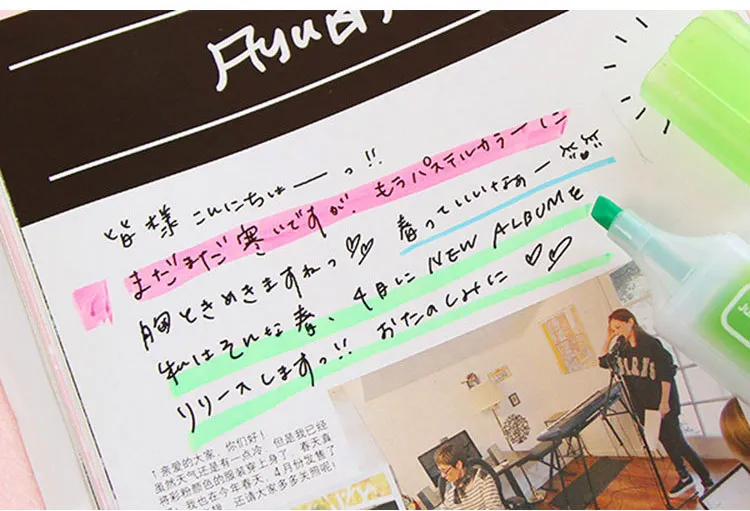 皆様 こんにちゎーっ!!
まだまだ寒いですが、もうパステルカラーに
胸ときめきますねっ♡♡ 春っていいなぁー
私はそんな春、4月に NEW ALBUMを
リリースしますっ!! おたのしみに♡♡
亲爱的大家,你们好!
虽然天气还是有一点冷,但是我已经
将彩粉颜色的服装穿上身了,春天真
,我也在今年春天,4月份发售了
还请大家多多关照呢!